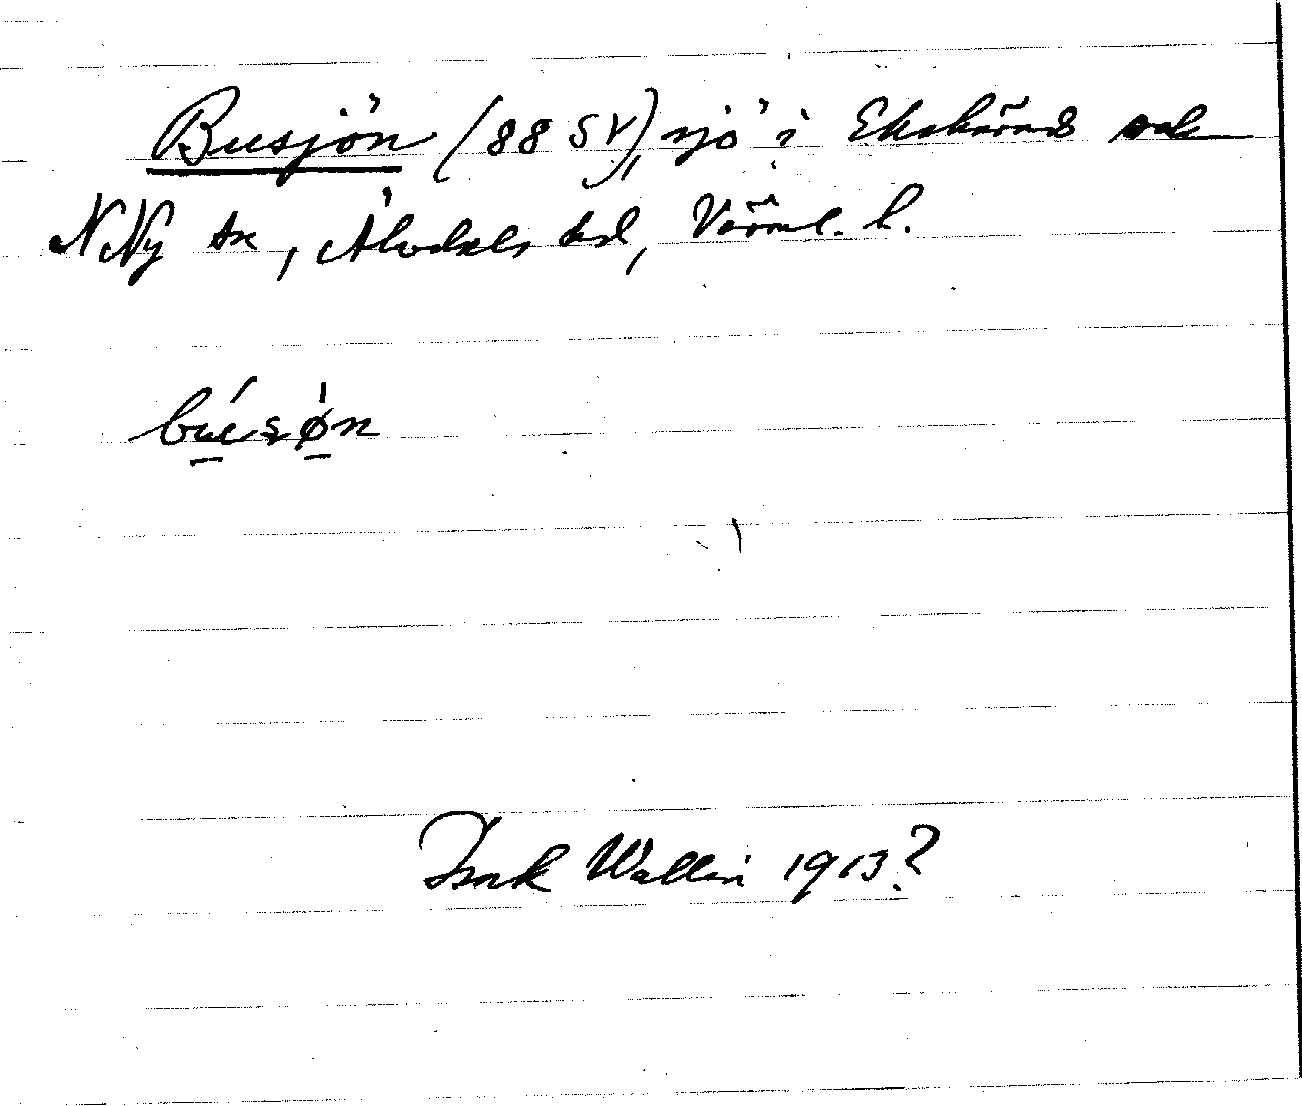 Busjön (88 SV), sjö i Ekshärads och
N Ny sn, Älvdals hd, Värml. l.
búsøn
Isak Wallin 1913?